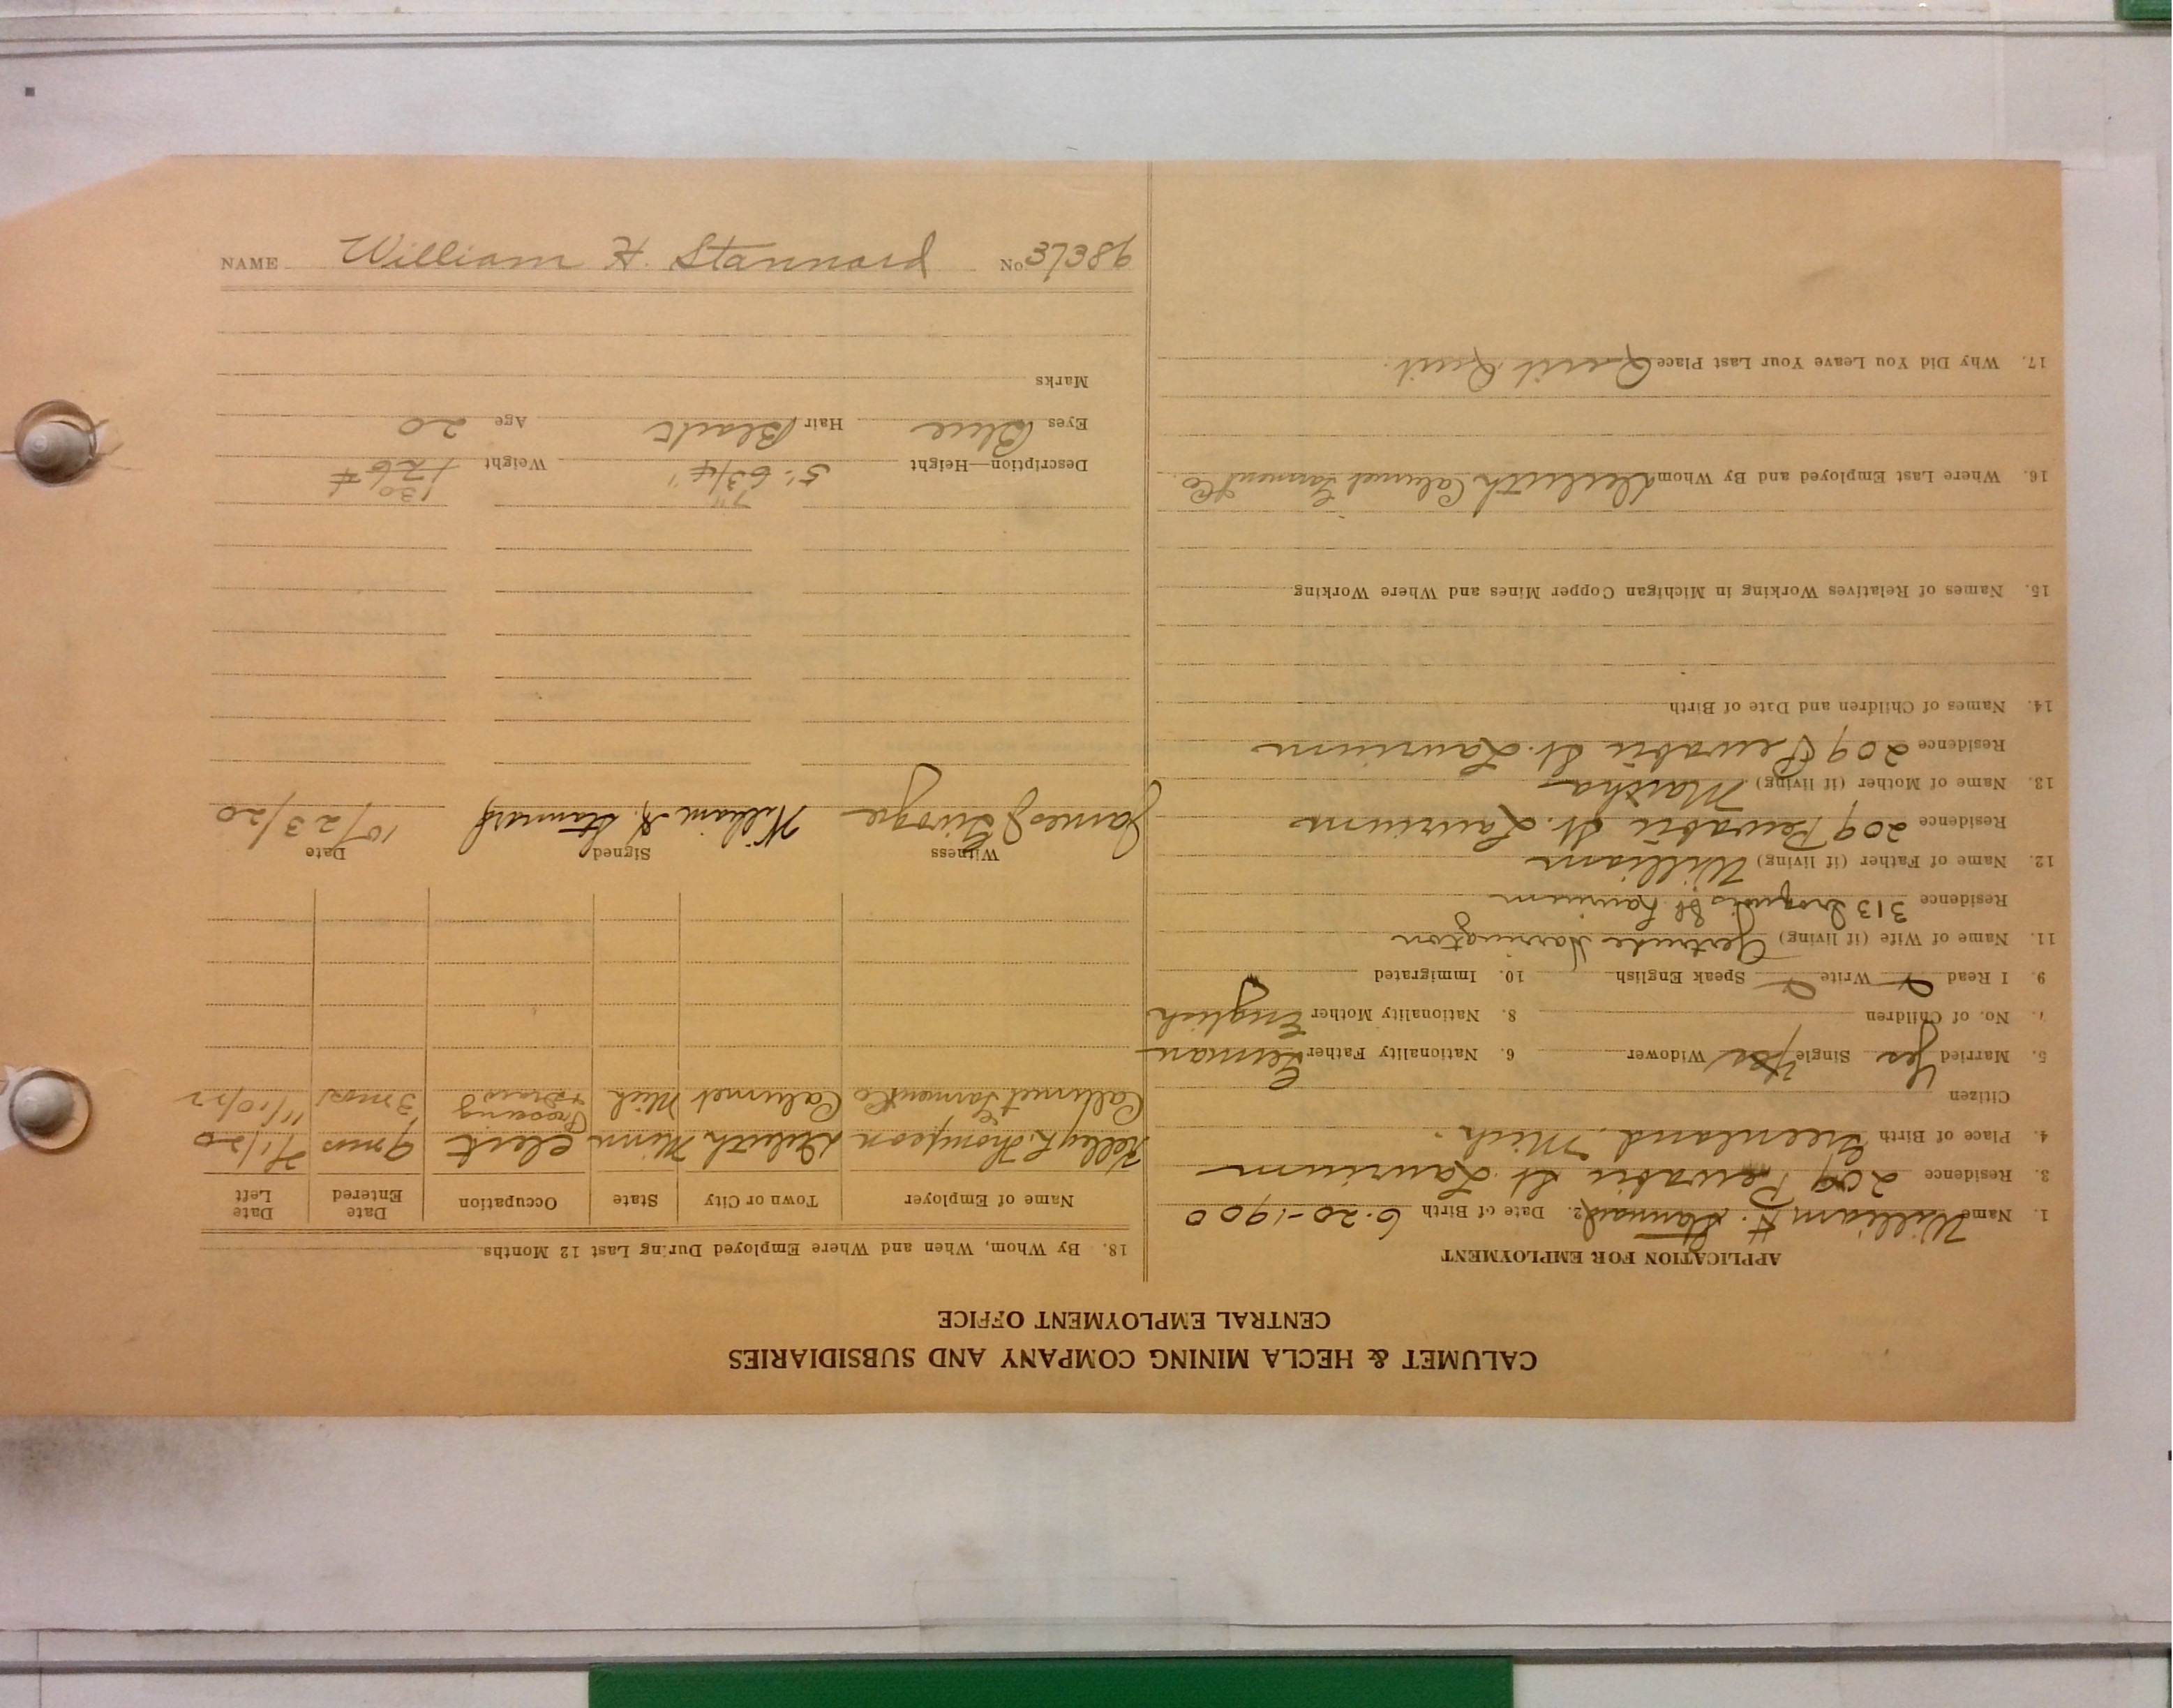 CALUMET & HECLA MINING COMPANY AND SUBSIDIARIES
CENTRAL EMPLOYMENT OFFICE
APPLICATION FOR EMPLOYMENT
1. Name William H. Stannard 2. Date of Birth 6-20-1900
3. Residence 209 Pewabic St. Laurium
4. Place of Birth Greenland Mich.
Citizen
5. Married Yes Single Widower 6. Nationality Father German
7. No. of Children 8. Nationality Mother English
9. I Read Write Speak English 10. Immigrated
11. Name of Wife (if living) Gertrude Harrington
Residence 313 Iroquois St Laurium
12. Name of Father (if living) William
Residence 209 Pewabic St. Laurium
13. Name of Mother (if living) Martha
Residence 209 Pewabic St. Laurium
14. Names of Children and Date of Birth
15. Names of Relatives Working in Michigan Copper Mines and Where Working
16. Where Last Employed and By Whom Duluth Calumet Garment Co.
17. Why Did You Leave Your Last Place Quit Quit.
18. By Whom, When and Where Employed During Last 12 Months
Name of Employer Town or City State Occupation Date Entered Date Left
Kelley & Thompson Duluth Minn Clerk 9 mos 7/1/20
Calumet Garment Co Calumet Mich Pressing 3 mos 11/10/22
Witness Signed Date
James J William H. Stannard 10/23/20
7" 130
Description—Height 5' 6 3/4" Weight 126 #
Eyes Blue Hair Black Age 20
Marks
NAME William H. Stannard No. 37389